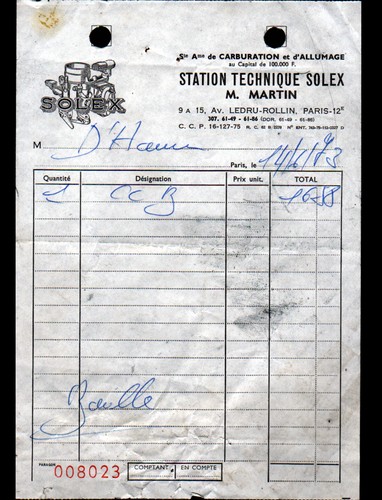 Sté Ame de CARBURATION et d'ALLUMAGE
au Capital de 100.000 F.
STATION TECHNIQUE SOLEX
M. MARTIN
SOLEX
9 A 15, Av. LEDRU-ROLLIN, PARIS-12E
307. 61-49 - 61-86 (DOM. 61-49 - 61-86)
C. C. P. 16-127-75
M
Paris, le
Quantité Désignation Prix unit. TOTAL
1 CC B
PARAGON 008023 COMPTANT EN COMPTE